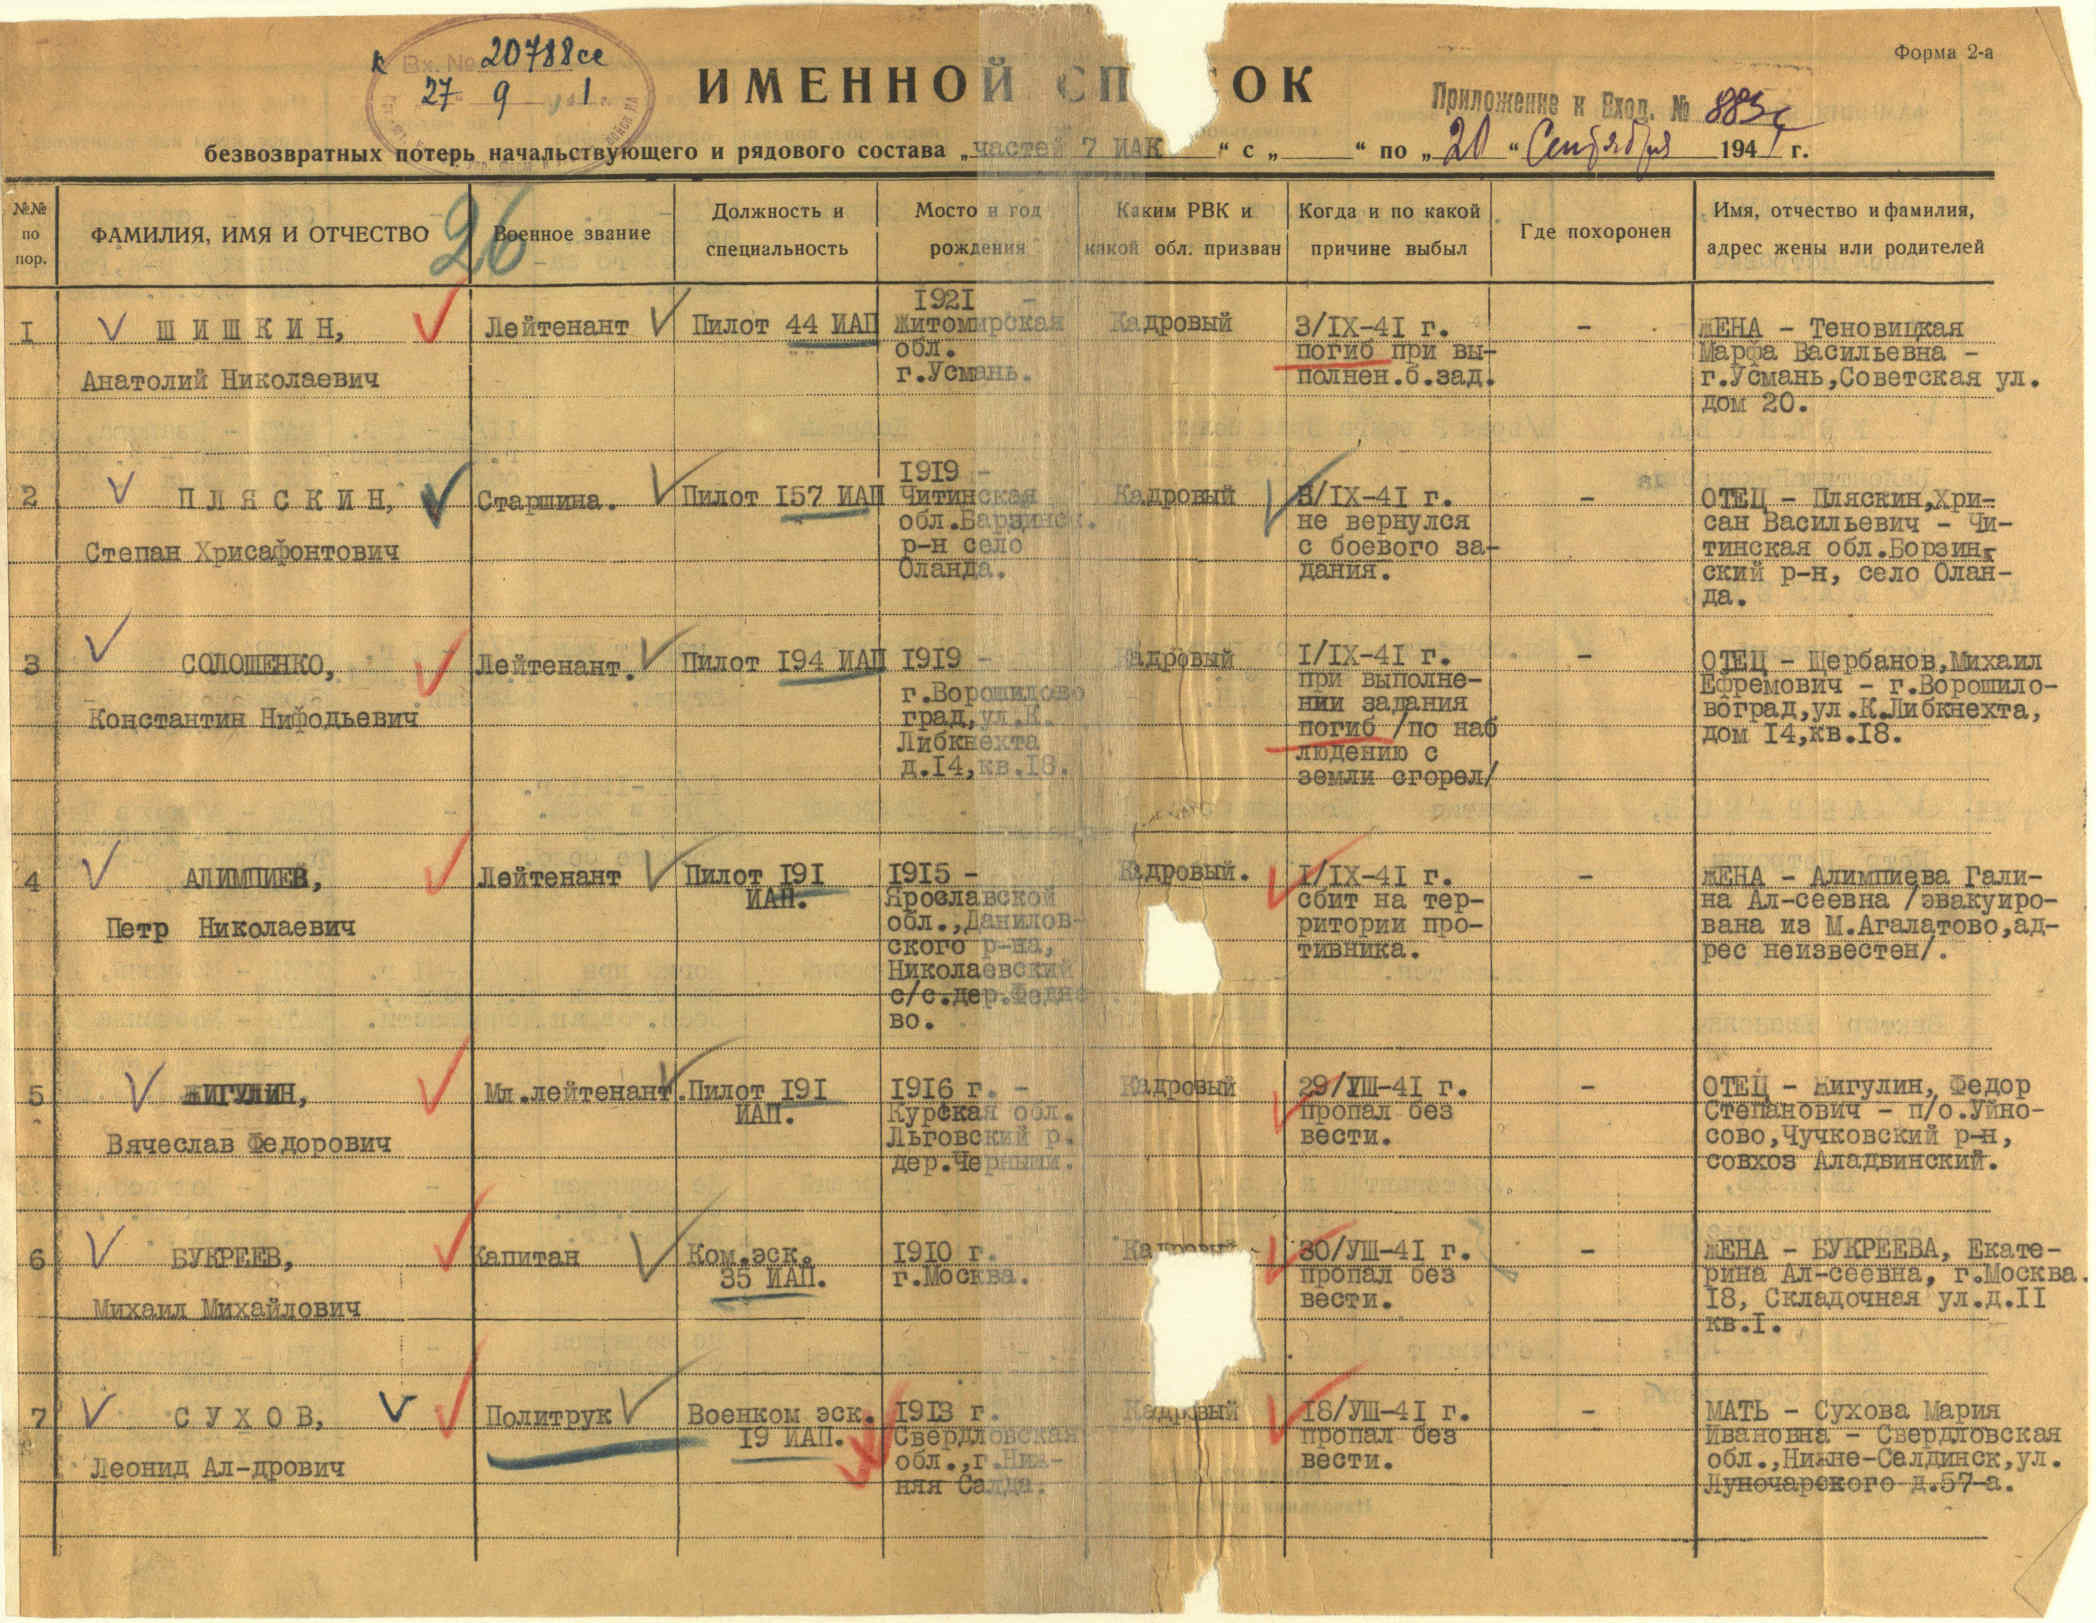 Форма 2-а
К Вх. № 20788сс
27 9 1
ИМЕННОЙ СП ОК
Приложение к Вход. №
безвозвратных потерь начальствующего и рядового состава „частей 7 ИАК“ с „ “ по „20“ Сентября 1941 г.
№№ по пор.
ФАМИЛИЯ, ИМЯ И ОТЧЕСТВО
26
Военное звание
Должность и специальность
Мосто и год рождения
Каким РВК и какой обл. призван
Когда и по какой причине выбыл
Где похоронен
Имя, отчество и фамилия, адрес жены или родителей
I
Ш И Ш К И Н,
Анатолий Николаевич
Лейтенант
Пилот 44 ИАП
1921 -
Житомирская
обл.
г.Усмань.
Кадровый
3/IX-41 г.
погиб при вы-
полнен.б.зад.
-
ЖЕНА - Теновицкая
Марфа Васильевна -
г.Усмань,Советская ул.
дом 20.
2
П Л Я С К И Н,
Степан Хрисафонтович
Старшина.
Пилот I57 ИАП
1919 -
Читинская
обл.Барзинск.
р-н село
Оланда.
Кадровый
8/IX-41 г.
не вернулся
с боевого за-
дания.
-
ОТЕЦ - Пляскин,Хри-
сан Васильевич - Чи-
тинская обл.Борзин-
ский р-н, село Олан-
да.
3
СОЛОШЕНКО,
Константин Нифодьевич
Лейтенант.
Пилот I94 ИАП
1919 -
г.Ворошилово
град,ул.К.
Либкнехта
д.I4,кв.I8.
Кадровый
I/IX-41 г.
при выполне-
нии задания
погиб /по наб
людению с
земли сгорел/
-
ОТЕЦ - Щербанов,Михаил
Ефремович - г.Ворошило-
воград,ул.К.Либкнехта,
дом I4,кв.I8.
4
АЛИМПИЕВ,
Петр Николаевич
Лейтенант
Пилот I9I
ИАП.
1915 -
Ярославской
обл.,Данилов-
ского р-на,
Николаевский
с/с.дер.Федно
во.
Кадровый.
I/IX-41 г.
сбит на тер-
ритории про-
тивника.
-
ЖЕНА - Алимпиева Гали-
на Ал-сеевна /эвакуиро-
вана из М.Агалатово,ад-
рес неизвестен/.
5
ЖИГУЛИН,
Вячеслав Федорович
Мл.лейтенант.
Пилот I9I
ИАП.
1916 г. -
Курская обл.
Льговский р.
дер.Черныши.
Кадровый
29/УШ-41 г.
пропал без
вести.
-
ОТЕЦ - Жигулин, Федор
Степанович - п/о.Уйно-
сово,Чучковский р-н,
совхоз Аладвинский.
6
БУКРЕЕВ,
Михаил Михайлович
Капитан
Ком.эск.
35 ИАП.
1910 г.
г.Москва.
Кадровый.
30/УШ-41 г.
пропал без
вести.
-
ЖЕНА - БУКРЕЕВА, Екате-
рина Ал-сеевна, г.Москва.
I8, Складочная ул.д.II
кв.I.
7
С У Х О В,
Леонид Ал-дрович
Политрук
Военком эск.
I9 ИАП.
1913 г.
Свердловская
обл.,г.Ниж-
няя Салда.
Кадровый
I8/УШ-41 г.
пропал без
вести.
-
МАТЬ - Сухова Мария
Ивановна - Свердловская
обл.,Нижне-Салдинск,ул.
Луночарского д.57-а.